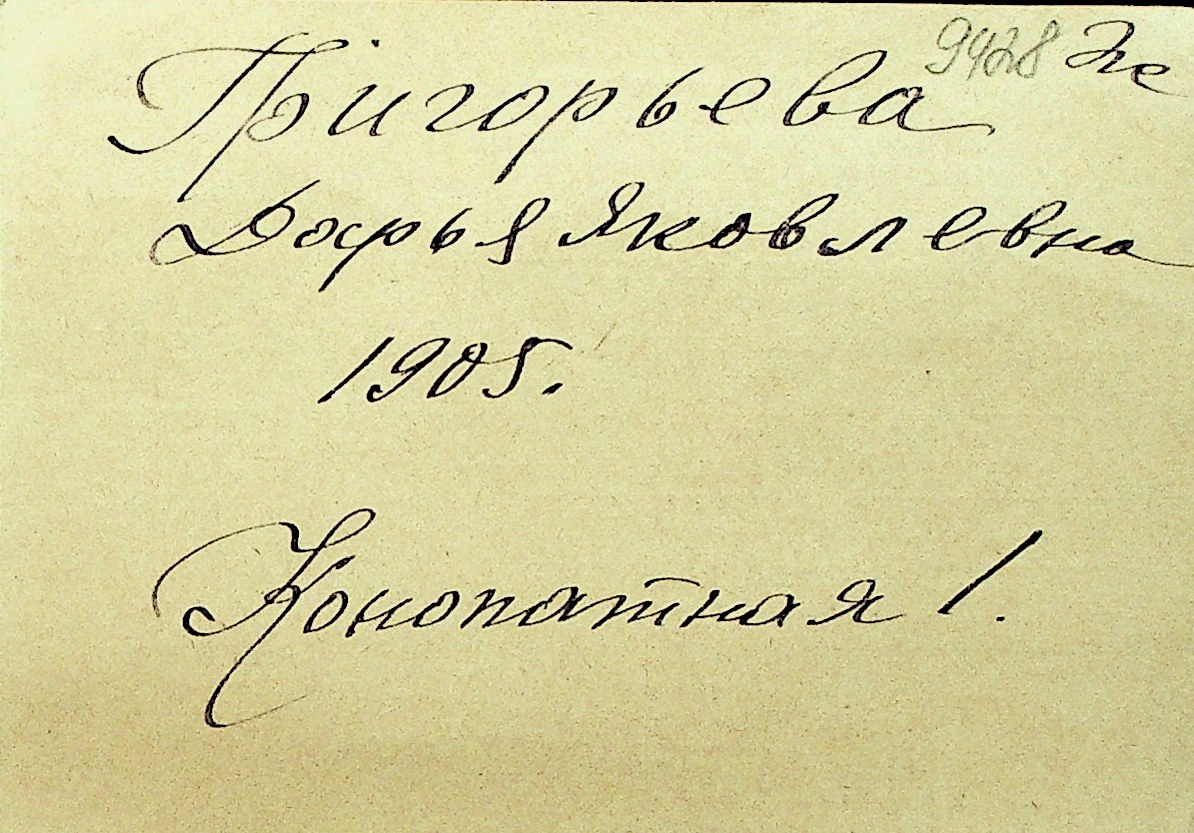 9428 Же
Григорьева
Дарья Яковлевна
1905.
Конопатная 1.